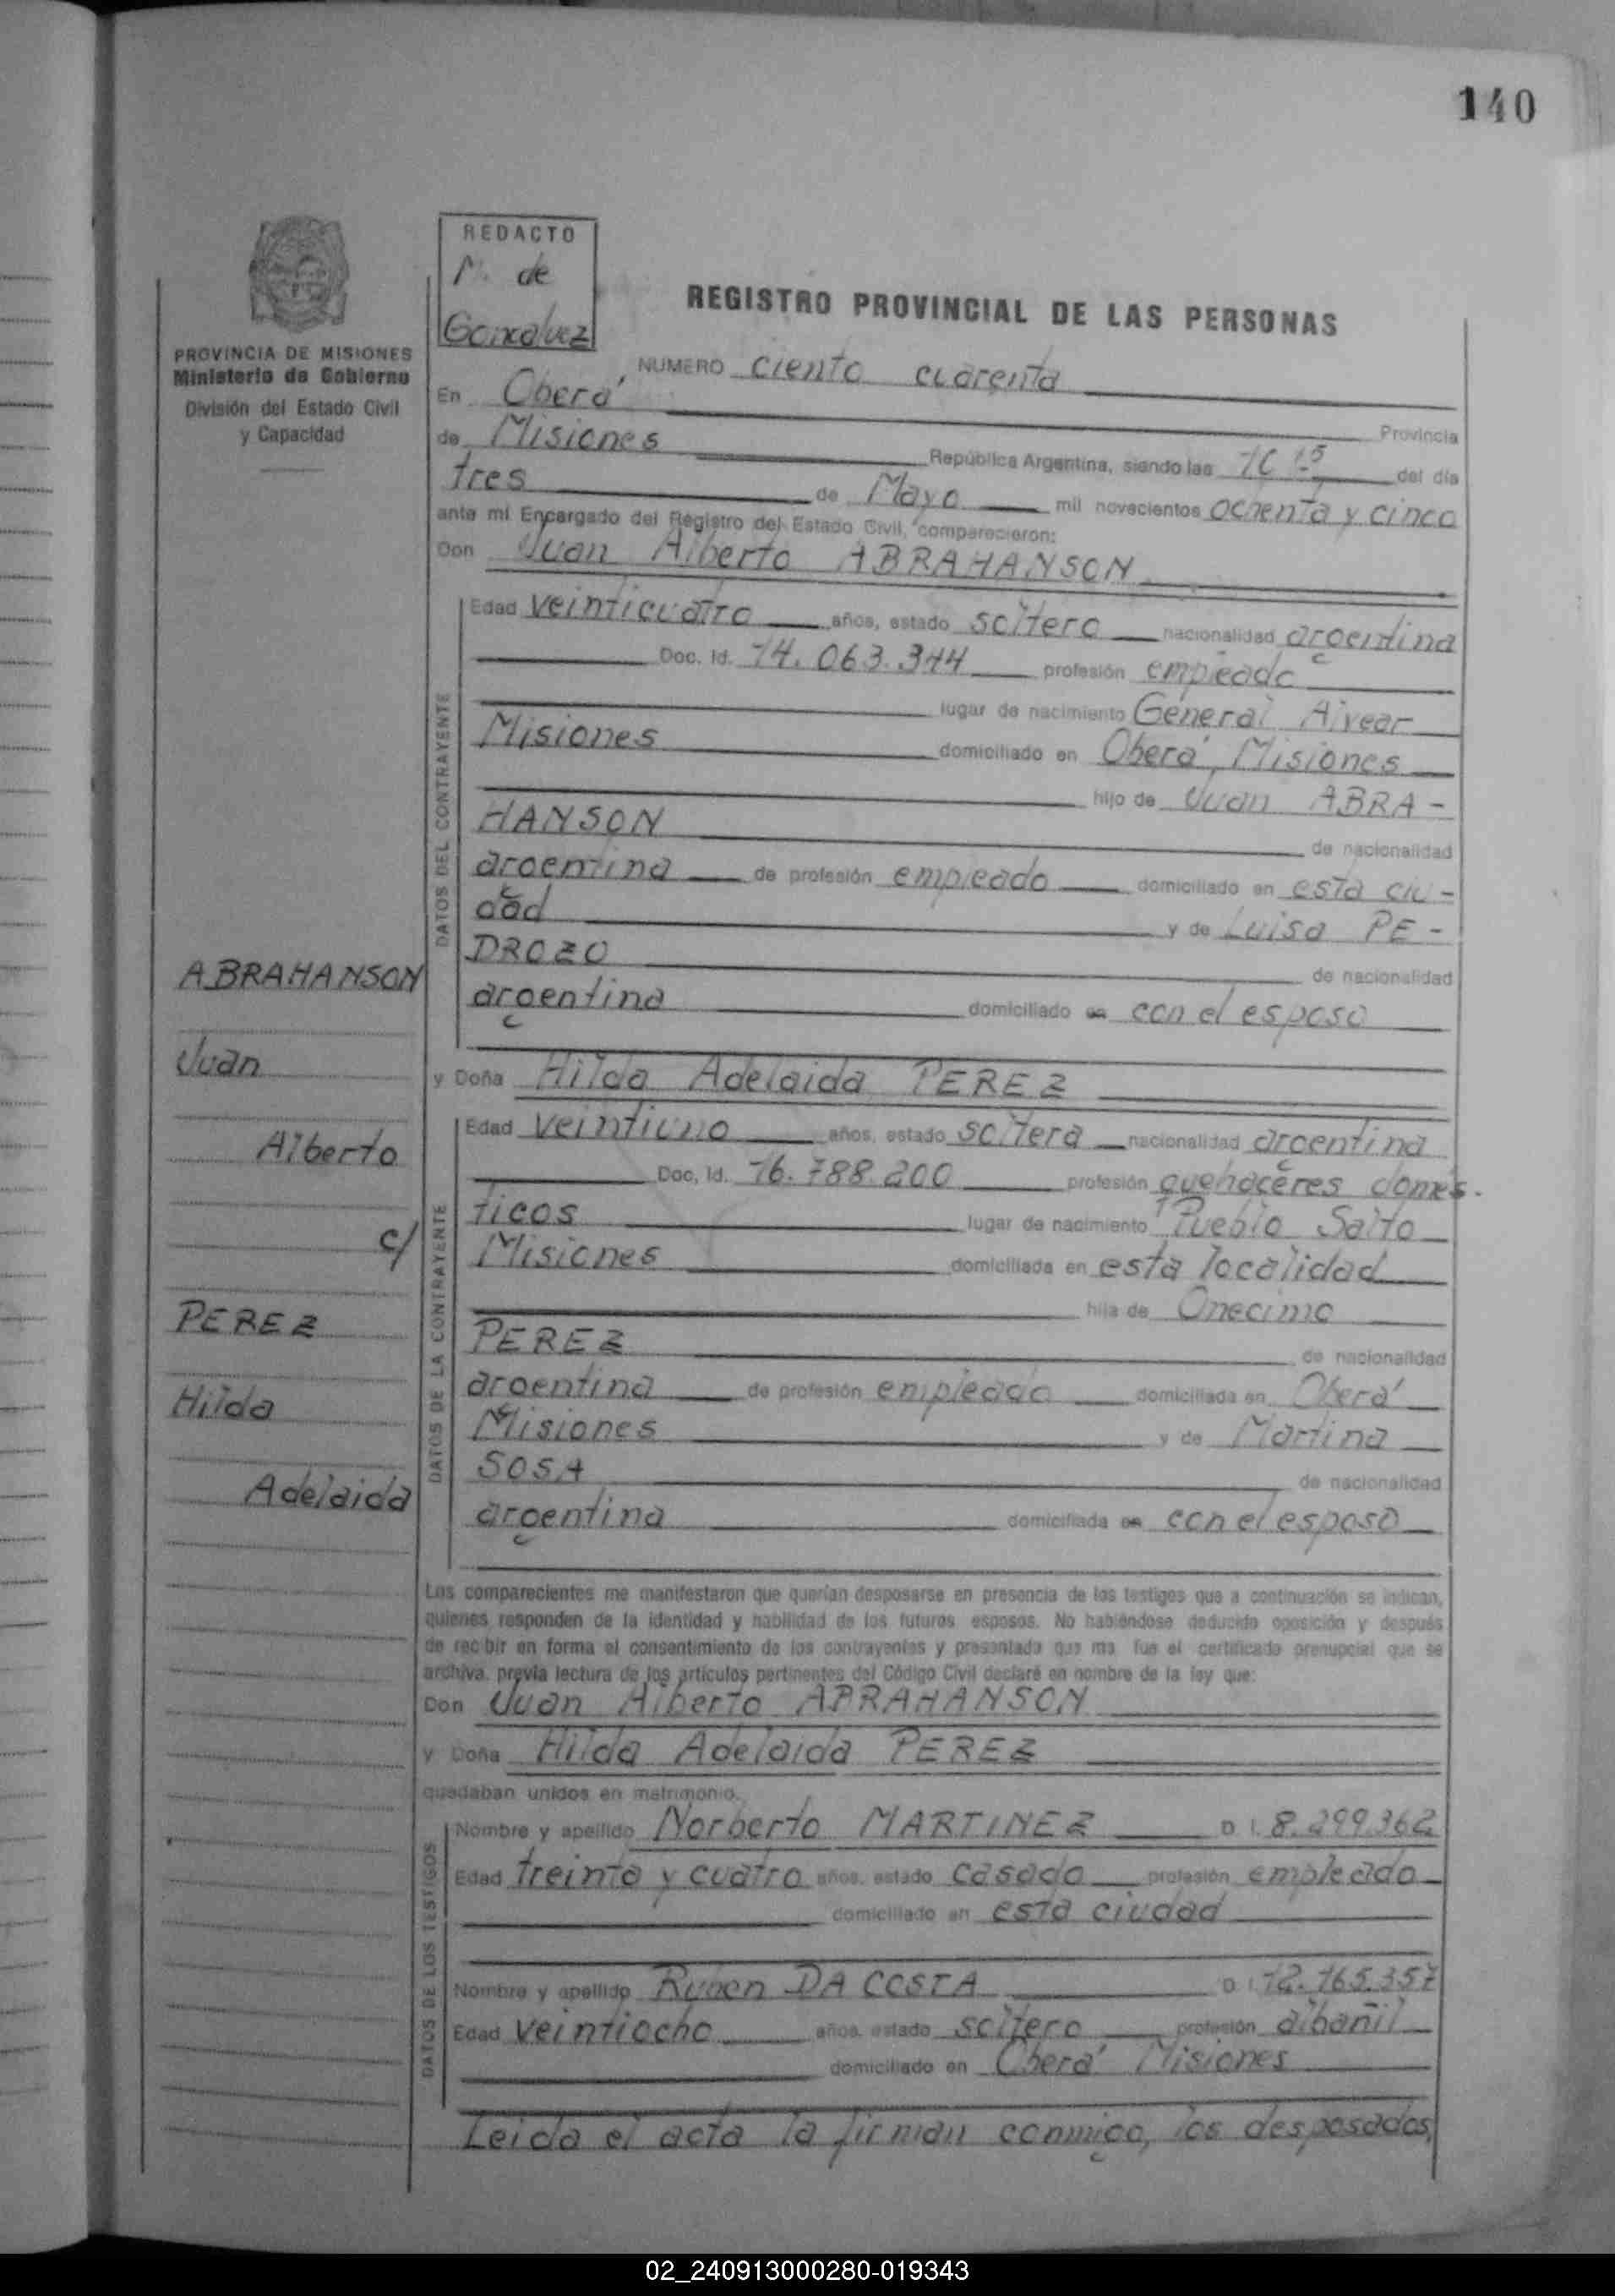 140
REDACTO
M. de
Gonzalvez
PROVINCIA DE MISIONES
Ministerio de Gobierno
División del Estado Civil
y Capacidad
REGISTRO PROVINCIAL DE LAS PERSONAS
NUMERO ciento cuarenta
En Oberá Provincia
de Misiones República Argentina, siendo las 10 15 del día
tres de Mayo mil novecientos ochenta y cinco
ante mi Encargado del Registro del Estado Civil, comparecieron:
Don Juan Alberto ABRAHANSON
DATOS DEL CONTRAYENTE
Edad veinticuatro años, estado soltero nacionalidad argentina
Doc. Id. 14.063.344 profesión empleado
lugar de nacimiento General Alvear
Misiones domiciliado en Oberá, Misiones
hijo de Juan ABRA-
HANSON de nacionalidad
argentina de profesión empleado domiciliado en esta ciu-
dad y de Luisa PE-
DROZO de nacionalidad
argentina domiciliado en con el esposo
ABRAHANSON
Juan
Alberto
c/
PEREZ
Hilda
Adelaida
y Doña Hilda Adelaida PEREZ
DATOS DE LA CONTRAYENTE
Edad veintiuno años, estado soltera nacionalidad argentina
Doc. Id. 16.788.200 profesión quehaceres domés-
ticos lugar de nacimiento Pueblo Salto
Misiones domiciliada en esta localidad
hija de Onecimo
PEREZ de nacionalidad
argentina de profesión empleado domiciliada en Oberá
Misiones y de Martina
SOSA de nacionalidad
argentina domiciliada en con el esposo
Los comparecientes me manifestaron que querían desposarse en presencia de los testigos que a continuación se indican,
quienes responden de la identidad y habilidad de los futuros esposos. No habiéndose deducido oposición y después
de recibir en forma el consentimiento de los contrayentes y presentado que me fue el certificado prenupcial que se
archiva, previa lectura de los artículos pertinentes del Código Civil declaré en nombre de la ley que:
Don Juan Alberto ABRAHANSON
y Doña Hilda Adelaida PEREZ
quedaban unidos en matrimonio.
DATOS DE LOS TESTIGOS
Nombre y apellido Norberto MARTINEZ D I. 8.299.362
Edad treinta y cuatro años, estado casado profesión empleado
domiciliado en esta ciudad
Nombre y apellido Ruben DA COSTA D I. 12.165.357
Edad veintiocho años, estado soltero profesión albañil
domiciliado en Oberá Misiones
Leida el acta la firman conmigo, los desposados,
02_240913000280-019343